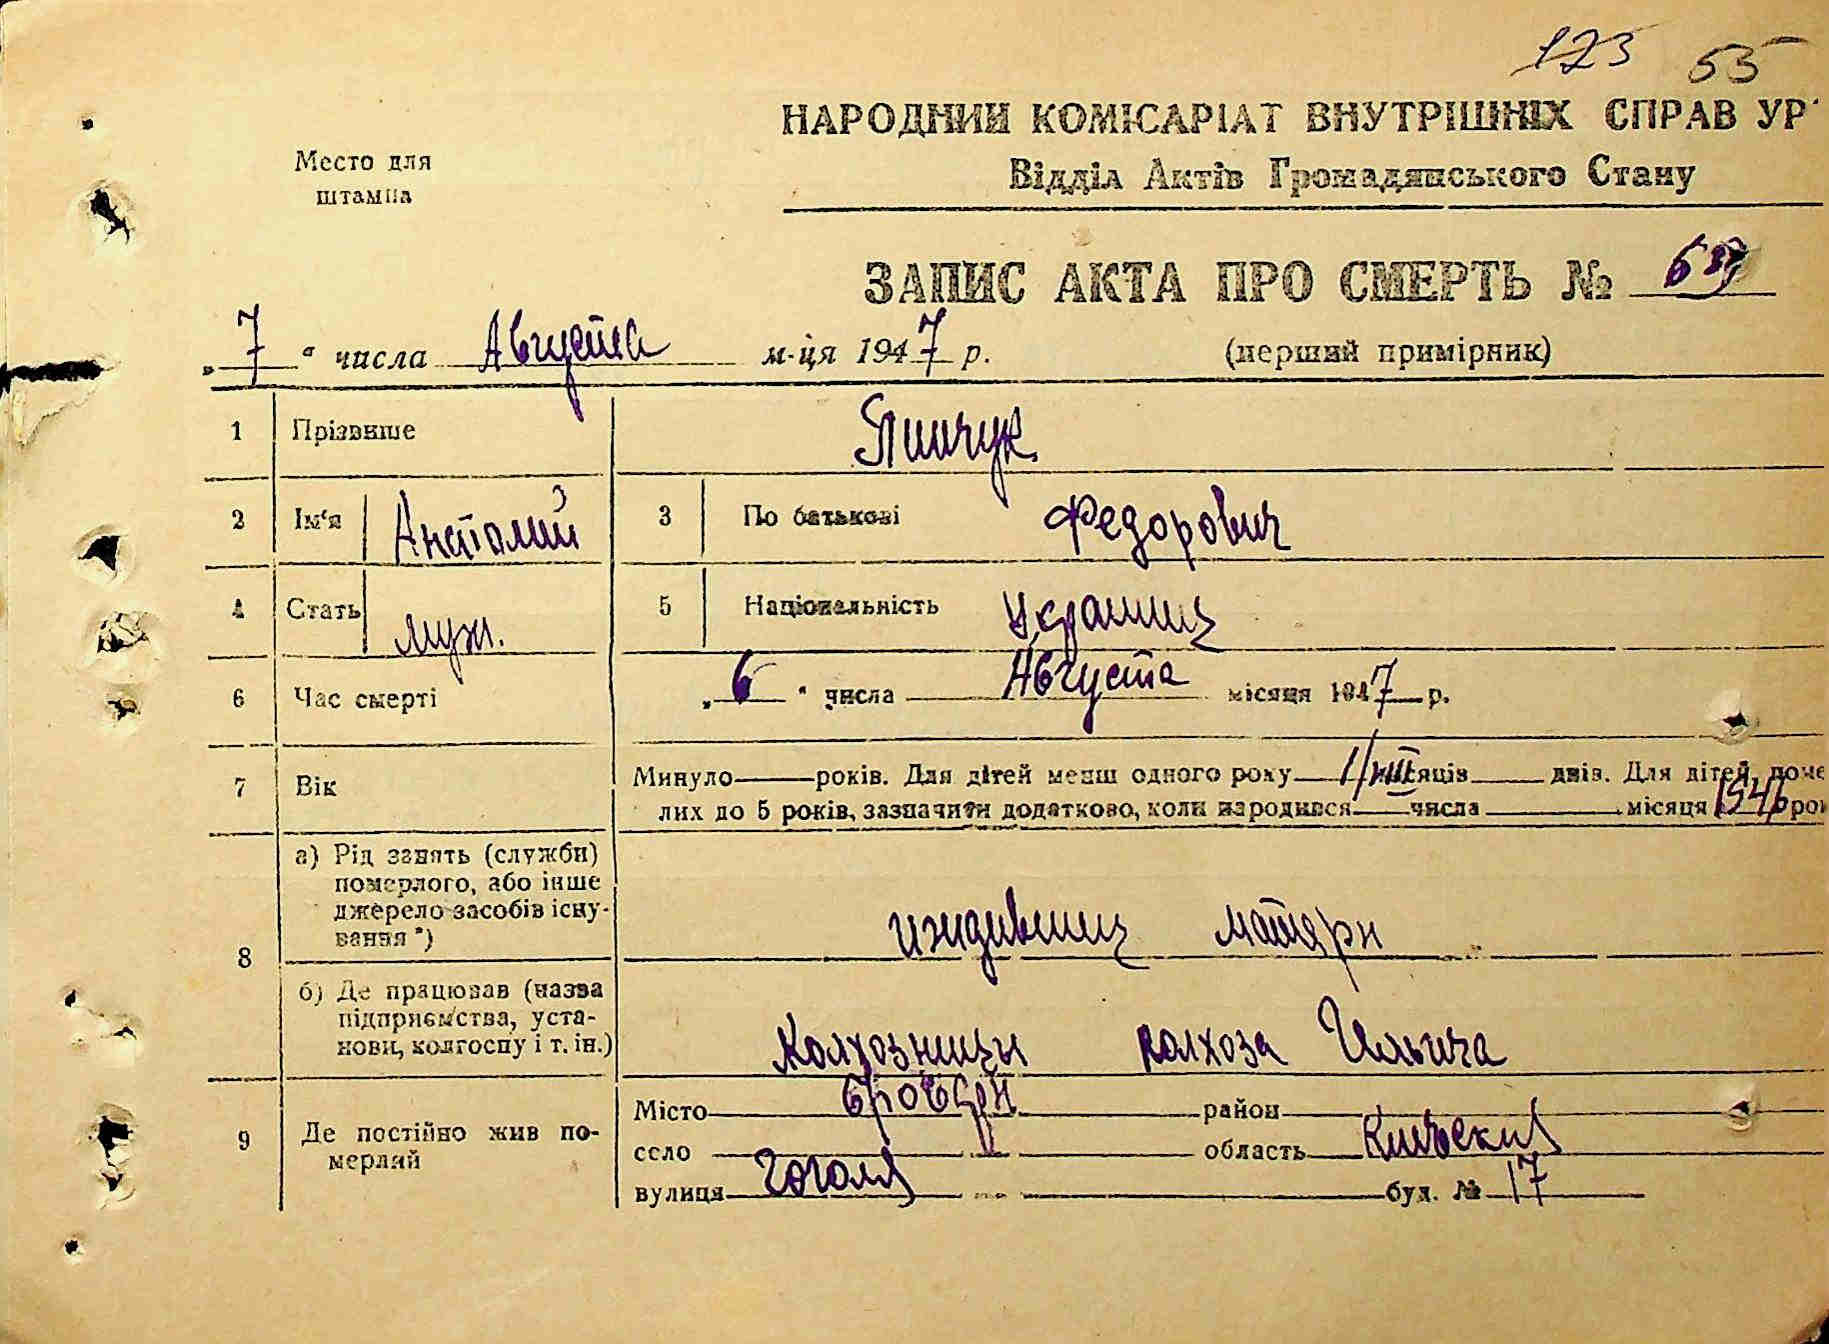 123 55
НАРОДНИЙ КОМІСАРІАТ ВНУТРІШНІХ СПРАВ УР
Место для
штампа
Відділ Актів Громадянського Стану
ЗАПИС АКТА ПРО СМЕРТЬ №
„7“ числа Августа м-ця 1947 р. (перший примірник)
1 Прізвище Пинчук
2 Ім'я Анатолий 3 По батькові Федорович
4 Стать муж. 5 Національність Украинец
6 Час смерті „6“ числа Августа місяця 1947 р.
7 Вік Минуло років. Для дітей менш одного року місяців днів. Для дітей, поме
лих до 5 років, зазначити додатково, коли народився числа місяця 1946 рок
8 а) Рід занять (служби)
померлого, або інше
джерело засобів існу-
вання*) иждивенец матери
б) Де працював (назва
підприємства, уста-
нови, колгоспу і т. ін.) Колхозницы колхоза Ильича
9 Де постійно жив по-
мерлий
Місто Бровары район
село область Киевская
вулиця Гоголя буд. № 17